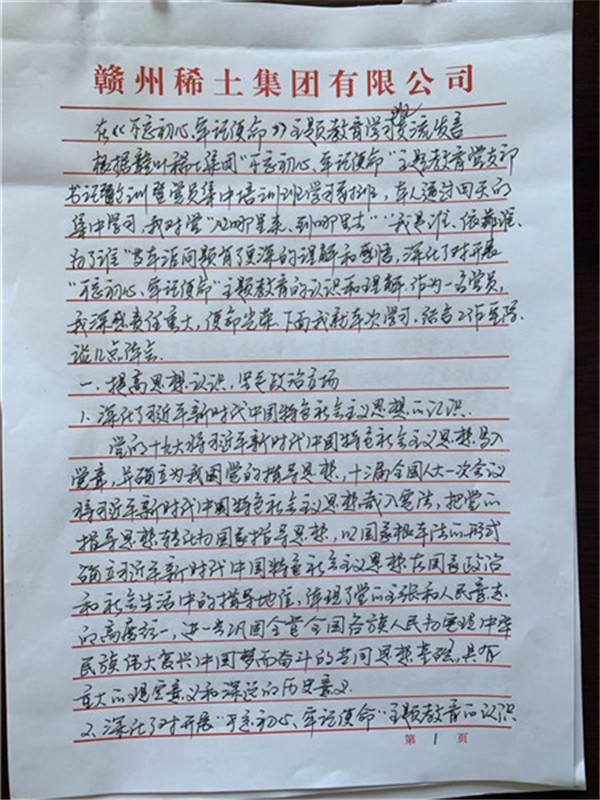 赣州稀土集团有限公司
在《不忘初心、牢记使命》主题教育学习交流发言
根据赣州稀土集团"不忘初心、牢记使命"主题教育党支部
书记培训暨党员集中培训班学习安排,本人通过四天的
集中学习,我对党"从哪里来、到哪里去""我是谁、依靠谁、
为了谁"等本源问题有了更深的理解和感悟,深化了对开展
"不忘初心、牢记使命"主题教育的认识和理解,作为一名党员,
我深感责任重大,使命光荣。下面我就本次学习,结合工作实际,
谈几点体会。
一、提高思想认识,坚定政治立场
1、深化了习近平新时代中国特色社会主义思想的认识.
党的十九大将习近平新时代中国特色社会主义思想写入
党章,并确立为我国党的指导思想,十三届全国人大一次会议
将习近平新时代中国特色社会主义思想载入宪法,把党的
指导思想转化为国家指导思想,以国家根本法的形式
确立习近平新时代中国特色社会主义思想在国家政治
和社会生活中的指导地位,体现了党的主张和人民意志
的高度统一,进一步巩固全党全国各族人民为实现中华
民族伟大复兴中国梦而奋斗的共同思想基础,具有
重大的现实意义和深远的历史意义.
2、深化了对开展"不忘初心、牢记使命"主题教育的认识
第 1 页